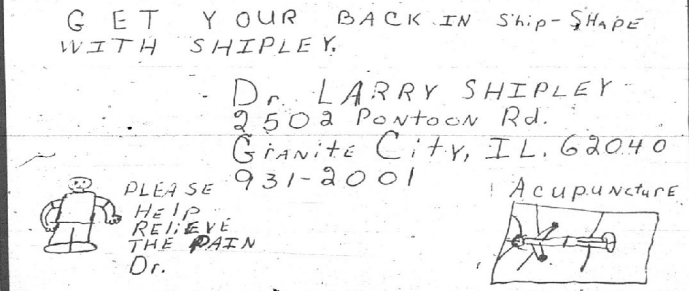 GET YOUR BACK IN Ship-SHAPE
WITH SHIPLEY.
Dr. LARRY SHIPLEY
2502 PONTOON Rd.
GRANITE CITY, IL. 62040
931-2001
PLEASE
HELP
RELIEVE
THE PAIN
Dr.
ACUPUNCTURE